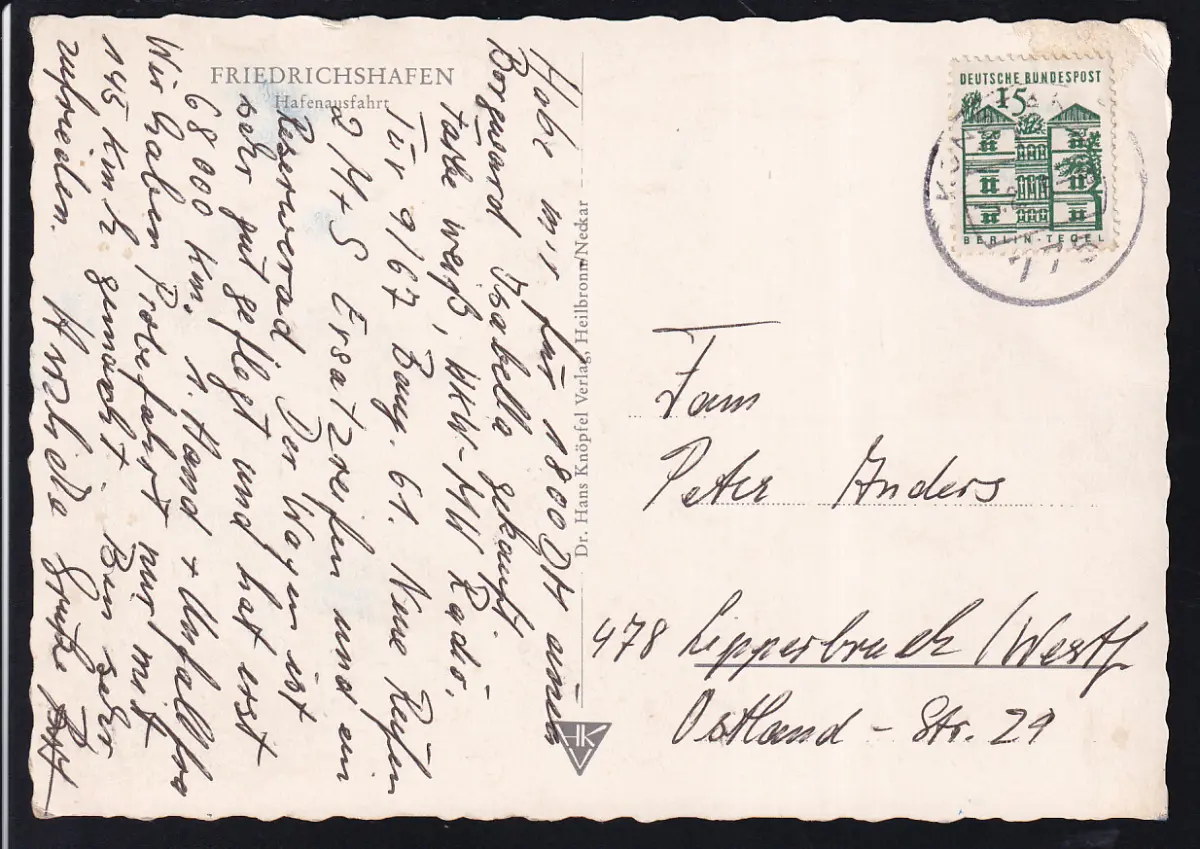 FRIEDRICHSHAFEN
Hafenausfahrt
Habe mir für 1800 DM einen
Borgward Isabella gekauft.
Farbe weiß, UKW-MW Radio,
TÜV 9/67 Bauj. 61. Neue Reifen
2 M+S Ersatzreifen und ein
Reserverad. Der Wagen ist
sehr gut geflegt und hat erst
68000 km, 1. Hand + Unfallfrei
Wir haben Probefahrt nur mit
145 km/h gemacht. Bin sehr
zufrieden. Herzliche Grüße
Dr. Hans Knöpfel Verlag, Heilbronn/Neckar
HK
DEUTSCHE BUNDESPOST
15
BERLIN-TEGEL
775
Fam
Peter Anders
478 Lipperbruch (Westf
Ostland-Str. 29